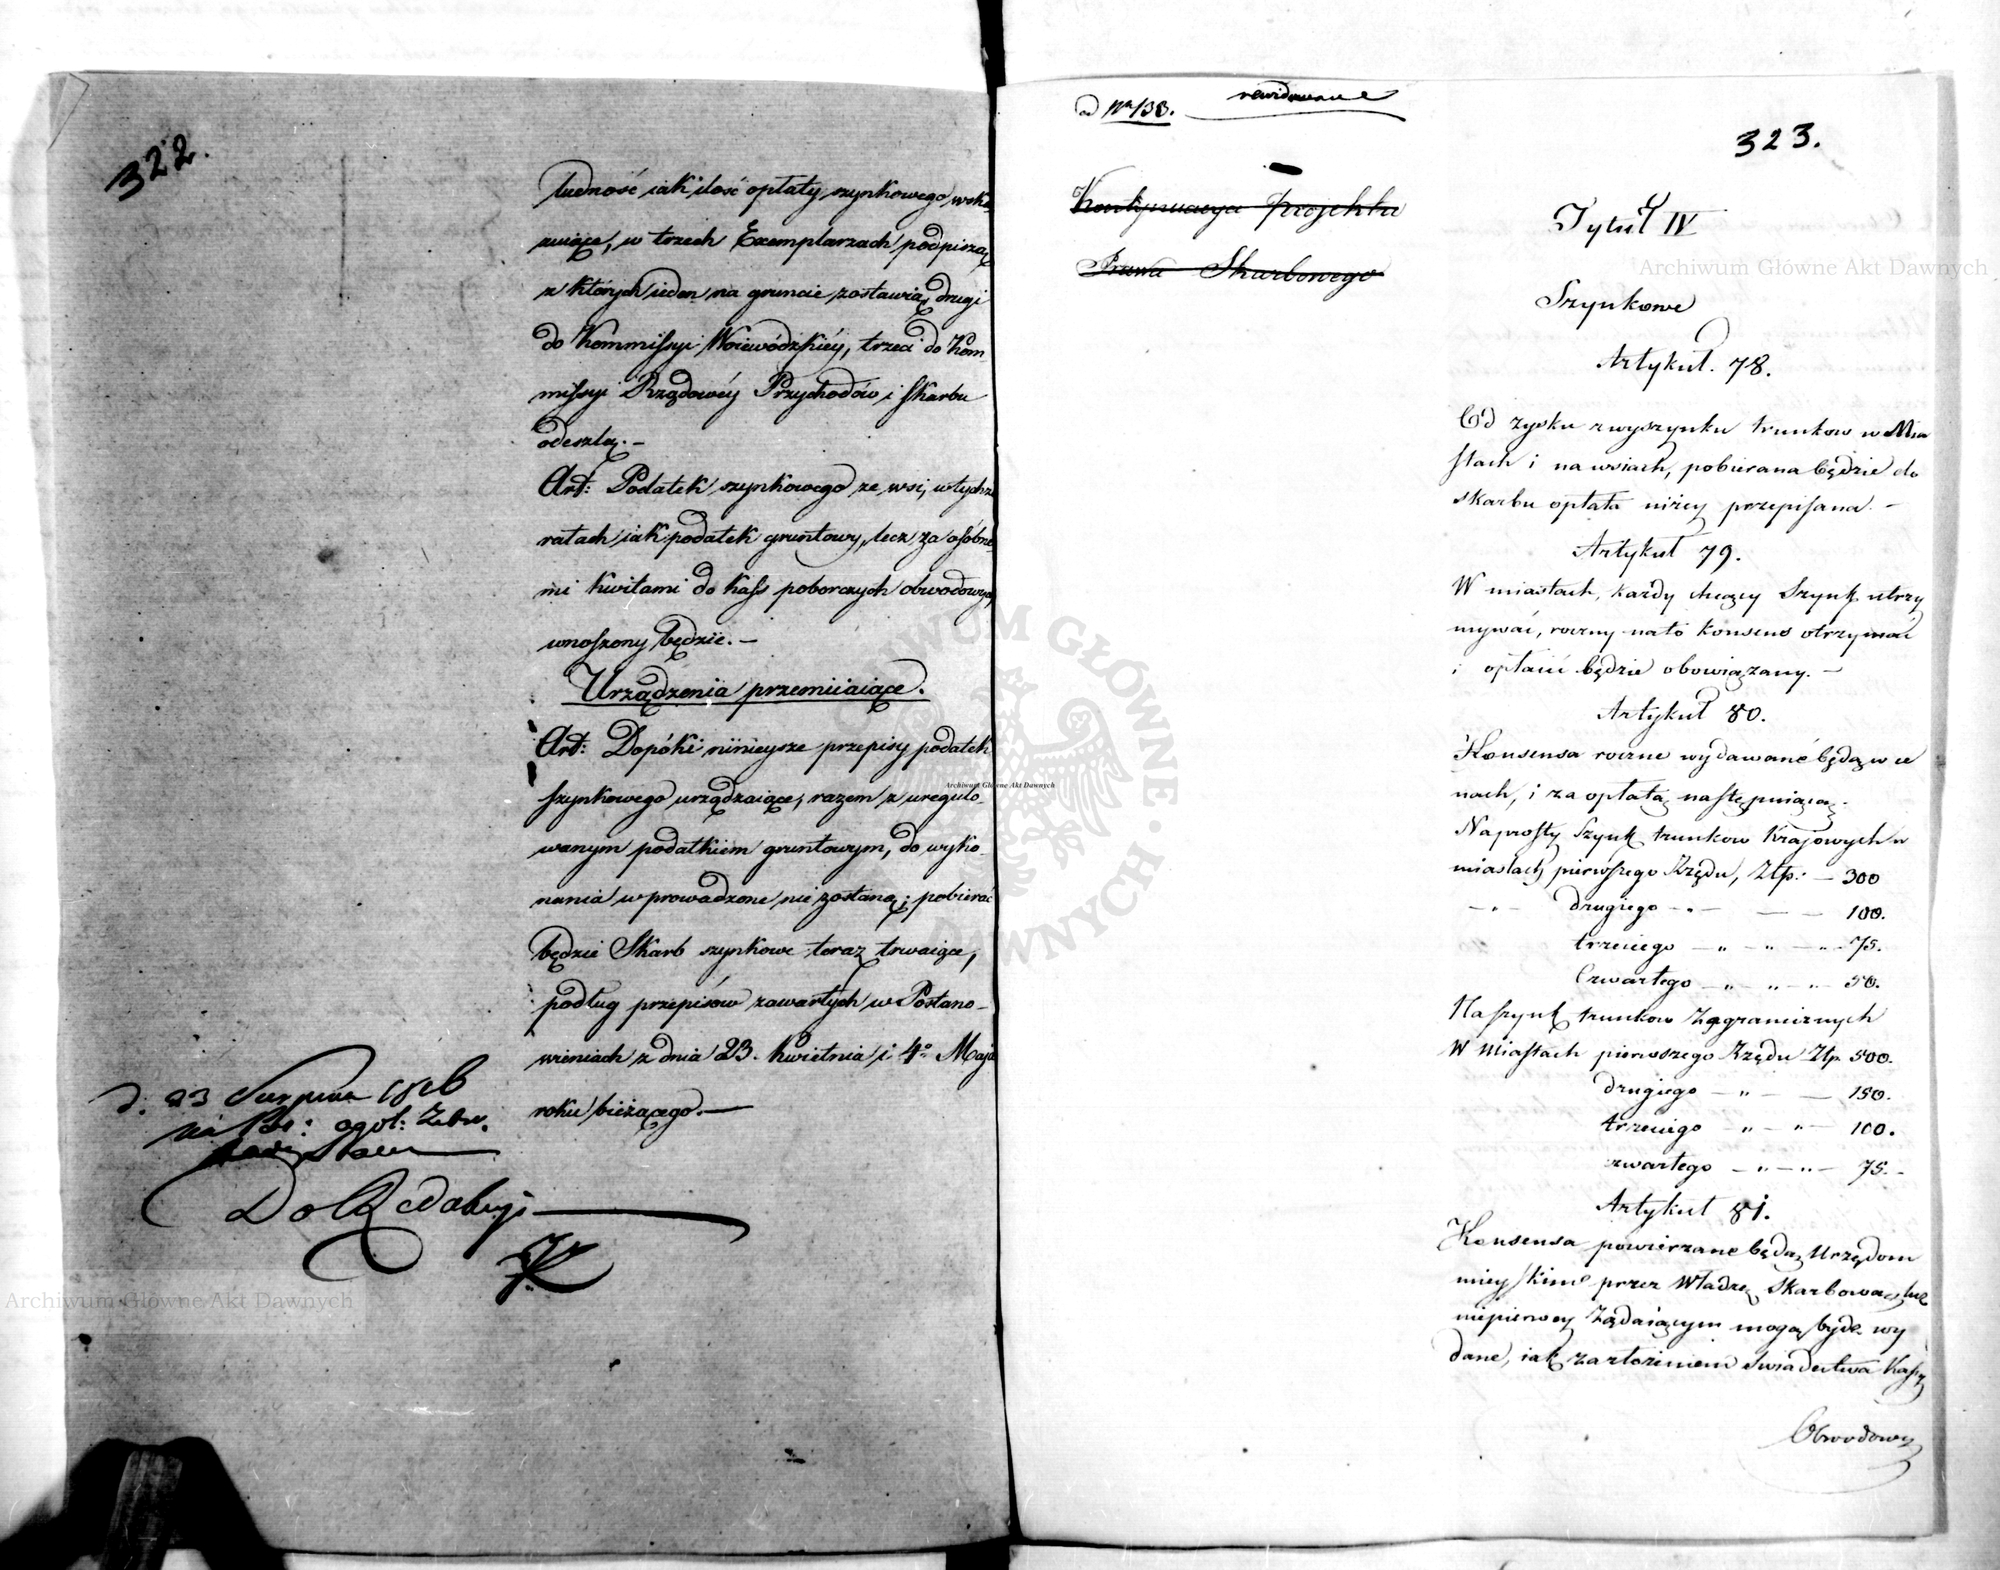 322.
ludność iak ilość opłaty szynkowego wska
zuiące, w trzech Exemplarzach podpiszą
z których ieden na gruncie zostawią, drugi
do Kommissyi Woiewódzkiéy, trzeci do Kom-
missyi Rządowéy Przychodów i Skarbu
odeszlą. –
Art: Podatek szynkowego ze wsi, w tychże
ratach iak podatek gruntowy, lecz za osóbne
mi kwitami do Kass poborczych obwodowych
wnoszony będzie. –
Urządzenia przemiiaiące.
Art: Dopóki ninieysze przepisy podatek
szynkowego urządzaiące, razem z uregulo-
wanym podatkiem gruntowym, do wyko-
nania wprowadzone nie zostaną; pobierać
będzie Skarb szynkowe teraz trwaiące,
podług przepisów zawartych w Postano-
wieniach z dnia 23. Kwietnia i 4º Maja
roku bieżącego. –
d. 23 Sierpnia
ogol: Zebr.
Do Redakcyi
323.
rewidowane
ad Nr 138.
Kontynuacya Projektu
Prawa Skarbowego
Tytuł IV
Szynkowe
Artykuł. 78.
Od zysku z wyszynku trunkow w Mia
stach i na wsiach, pobierana będzie do
skarbu opłata niżey przepisana. –
Artykuł 79.
W miastach, każdy chcący Szynk utrzy
mywać, roczny na to Konsens otrzymać
i opłacić będzie obowiązany. –
Artykuł 80.
Konsensa roczne wydawane będą w ce
nach, i za opłatą następuiącą.
Na prosty Szynk trunkow Krajowych w
miastach pierwszego Rzędu, Ztp: – 300
– " – drugiego – " – – – 100.
trzeciego – " – " – " – 75.
Czwartego – " – " – " – 50.
Na szynk trunkow Zagranicznych
W Miastach pierwszego Rzędu Ztp 500.
drugiego – " – – 150.
trzeciego – " – " – 100.
czwartego – " – " – 75. –
Artykuł 81.
Konsensa powierzane będą Urzędom
mieyskim przez Władzę Skarbową, lecz
niepierwey Żądaiącym mogą bydź wy
dane, iak za złożeniem Swiadectwa Kassy
Obwodowey
Archiwum Główne Akt Dawnych
Archiwum Główne Akt Dawnych
Archiwum Główne Akt Dawnych
ARCHIWUM GŁÓWNE AKT DAWNYCH